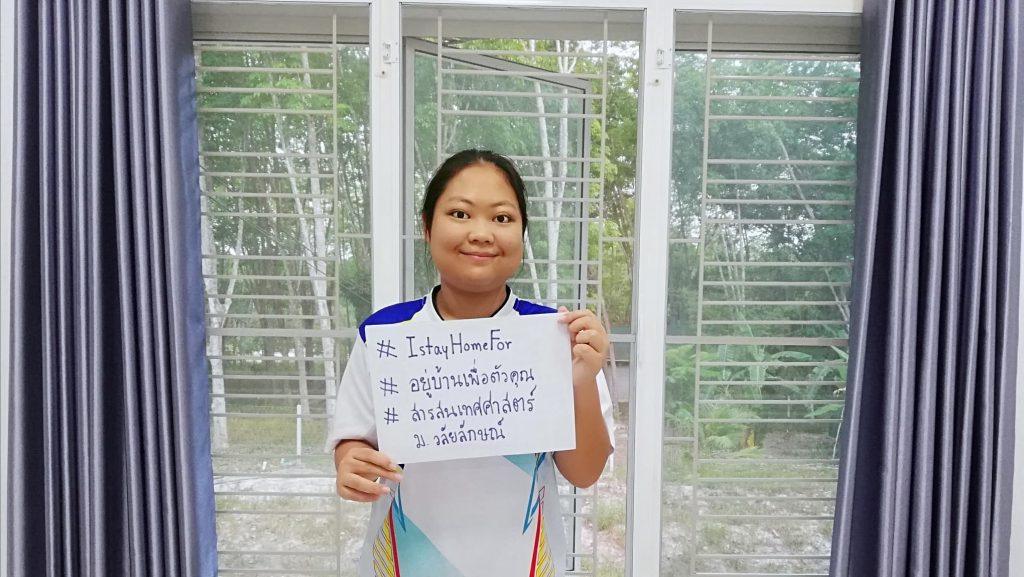 # IstayHomeFor
# อยู่บ้านเพื่อตัวคุณ
# สารสนเทศศาสตร์
ม. วลัยลักษณ์